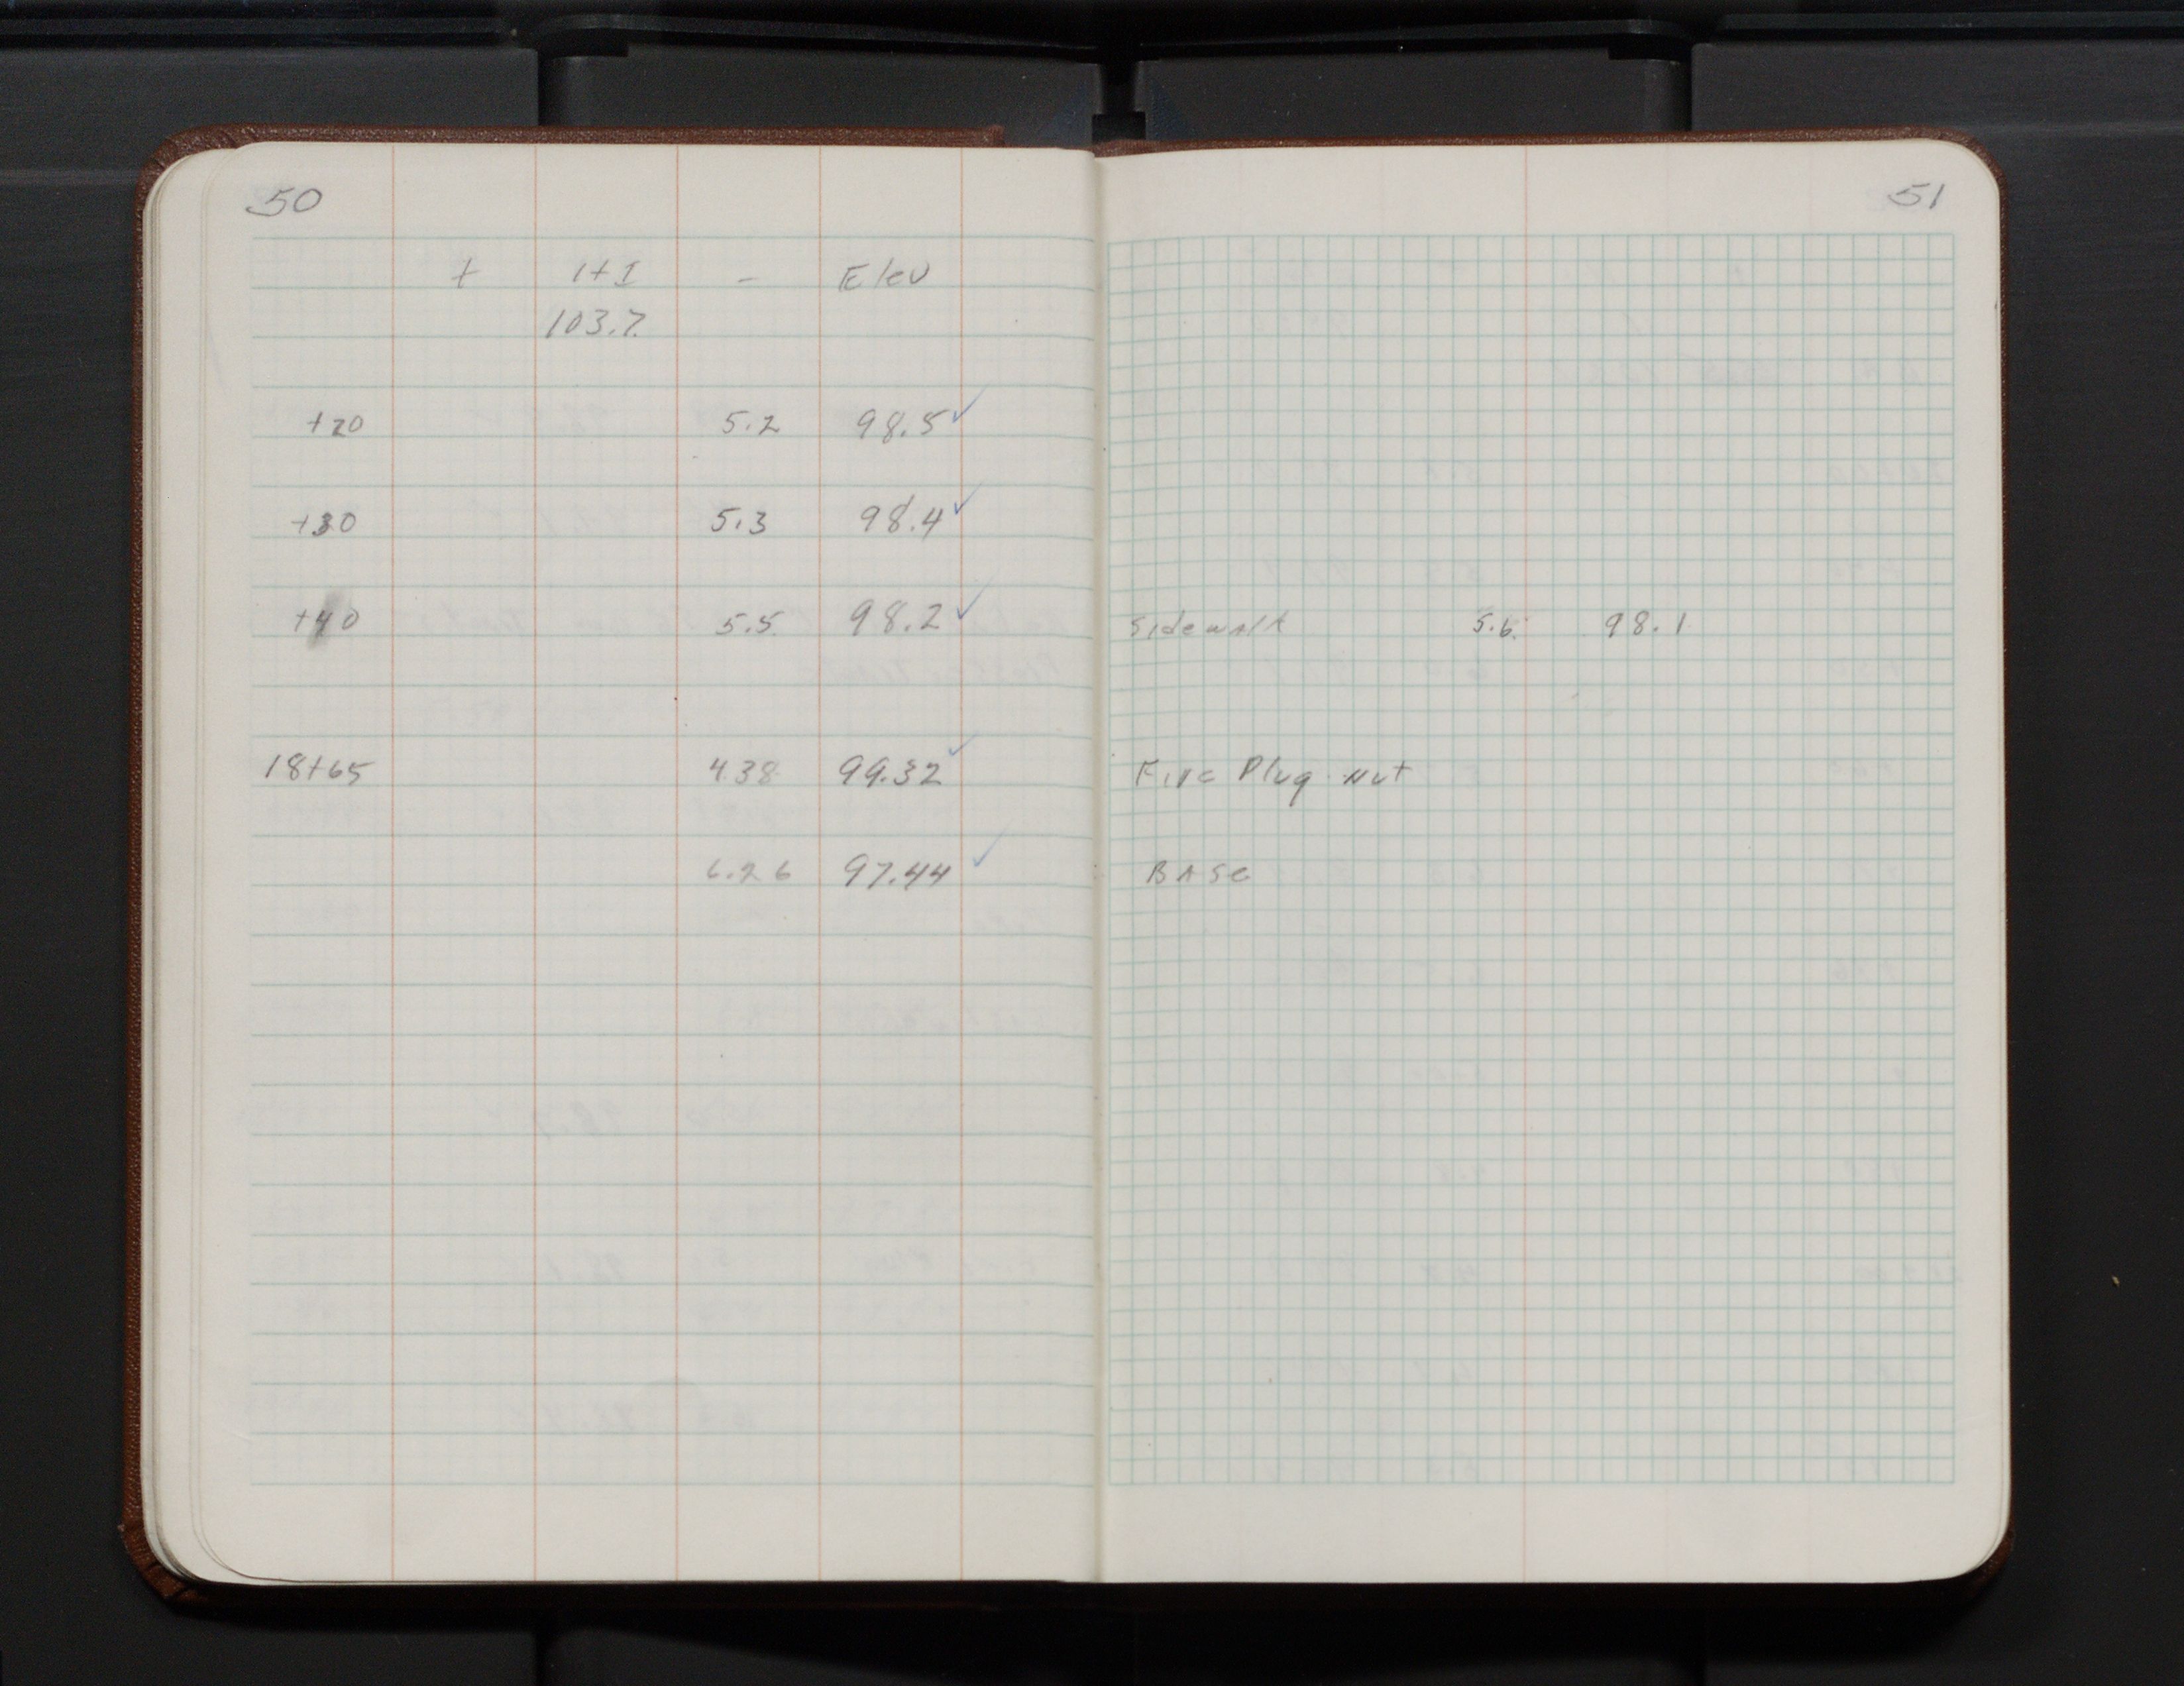 50
+ HI - Elev
103.7
+20 5.2 98.5 ✓
+30 5.3 98.4 ✓
+40 5.5 98.2 ✓
18+65 4.38 99.32 ✓
6.26 97.44 ✓
51
Sidewalk 5.6 98.1
Fire Plug Nut
BASE